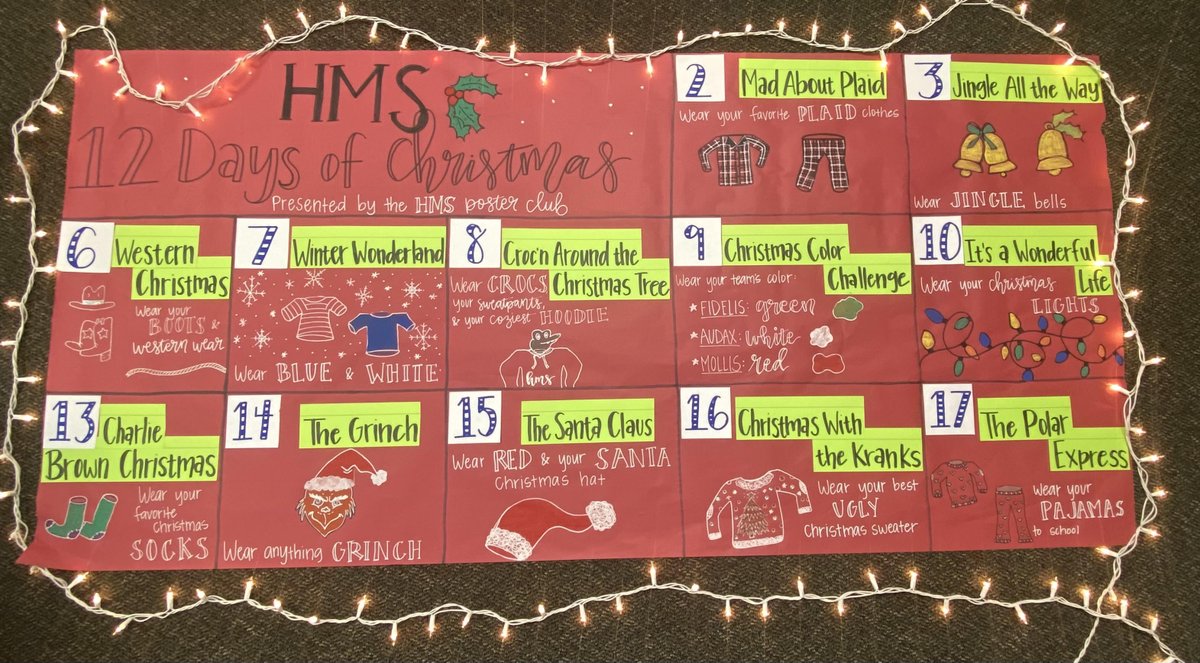 HMS
12 Days of Christmas
Presented by the HMS poster club
2
Mad About Plaid
Wear your favorite PLAID clothes
3
Jingle All the Way
Wear JINGLE bells
6
Western
Christmas
Wear your
BOOTS &
western wear
7
Winter Wonderland
Wear BLUE & WHITE
8
Croc'n Around the
Christmas Tree
Wear CROCS
your sweatpants,
& your coziest HOODIE
hms
9
Christmas Color
Challenge
Wear your team's color:
*FIDELIS: green
*AUDAX: white
*MOLLIS: red
10
It's a Wonderful
Life
Wear your christmas
LIGHTS
13
Charlie
Brown Christmas
Wear your
favorite
Christmas
SOCKS
14
The Grinch
Wear anything GRINCH
15
The Santa Claus
Wear RED & your SANTA
Christmas hat
16
Christmas With
the Kranks
Wear your best
UGLY
Christmas sweater
17
The Polar
Express
Wear your
PAJAMAS
to school